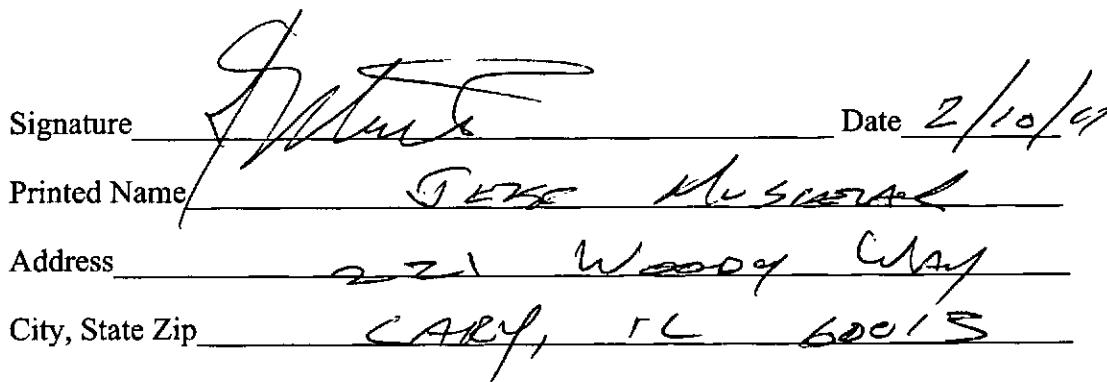 Signature Date 2/10/
Printed Name
Address 221 Woody Way
City, State Zip CARY, IL 60013